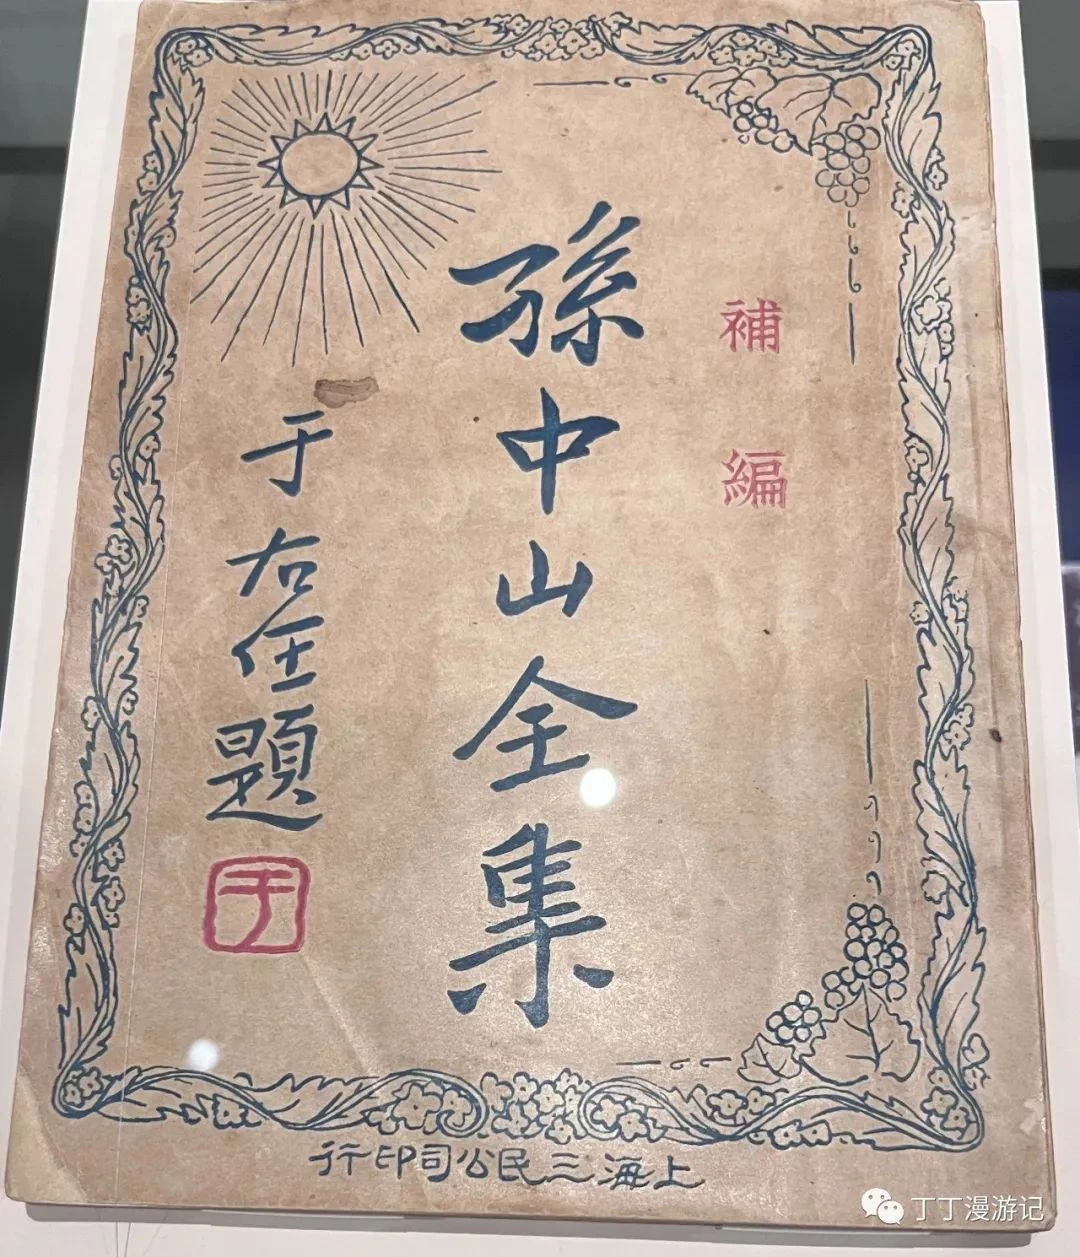 補編
孫中山全集
于右任題
于
上海三民公司印行
丁丁漫游记